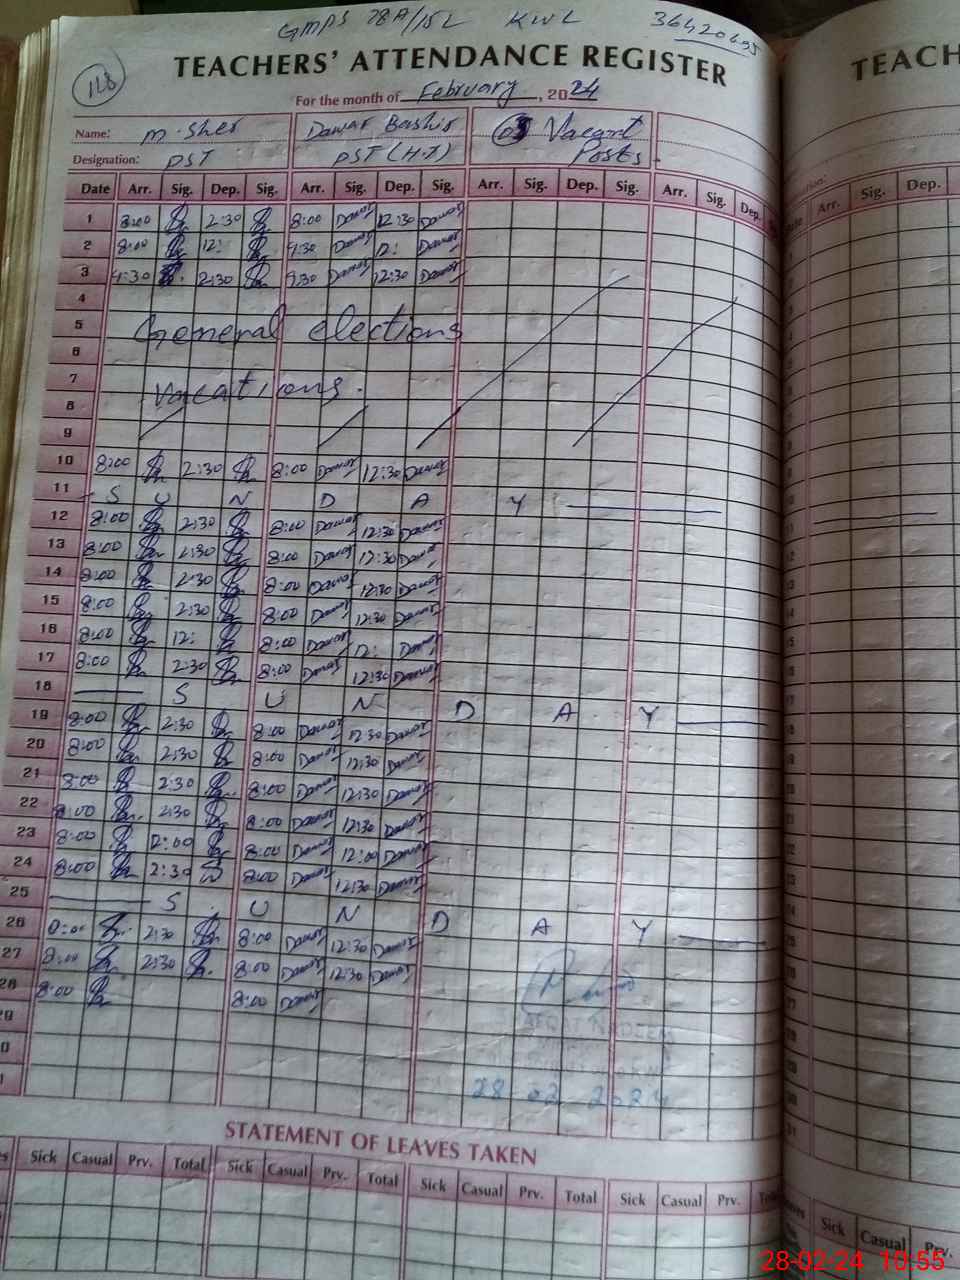 GMPS 78A/15L KWL 36420695
TEACHERS' ATTENDANCE REGISTER
128
For the month of February, 2024
Name: M. Sher Dawar Bashir 03 Vacant
Designation: PST PST (H.T) Posts.
Date Arr. Sig. Dep. Sig. Arr. Sig. Dep. Sig. Arr. Sig. Dep. Sig. Arr. Sig. Dep.
1 8:00 2:30 8:00 Dawar 12:30 Dawar
2 8:00 12: 9:30 Dawar 12: Dawar
3 9:30 2:30 9:30 Dawar 12:30 Dawar
4
5 General elections
6
7 Vacations.
8
9
10 8:00 2:30 8:00 Dawar 12:30 Dawar
11 S U N D A Y
12 8:00 2:30 8:00 Dawar 12:30 Dawar
13 8:00 2:30 8:00 Dawar 12:30 Dawar
14 8:00 2:30 8:00 Dawar 12:30 Dawar
15 8:00 2:30 8:00 Dawar 12:30 Dawar
16 8:00 12: 8:00 Dawar 12: Dawar
17 8:00 2:30 8:00 Dawar 12:30 Dawar
18 S U N D A Y
19 8:00 2:30 8:00 Dawar 12:30 Dawar
20 8:00 2:30 8:00 Dawar 12:30 Dawar
21 8:00 2:30 8:00 Dawar 12:30 Dawar
22 8:00 2:30 8:00 Dawar 12:30 Dawar
23 8:00 12:00 8:00 Dawar 12:00 Dawar
24 8:00 2:30 8:00 Dawar 12:30 Dawar
25 S U N D A Y
26 8:00 2:30 8:00 Dawar 12:30 Dawar
27 8:00 2:30 8:00 Dawar 12:30 Dawar
28 8:00 8:00 Dawar
29
NADEEM
28 02 2024
STATEMENT OF LEAVES TAKEN
Sick Casual Prv. Total Sick Casual Prv. Total Sick Casual Prv. Total Sick Casual Prv.
TEACH
Arr. Sig. Dep.
Sick Casual Prv.
28-02-24 10:55